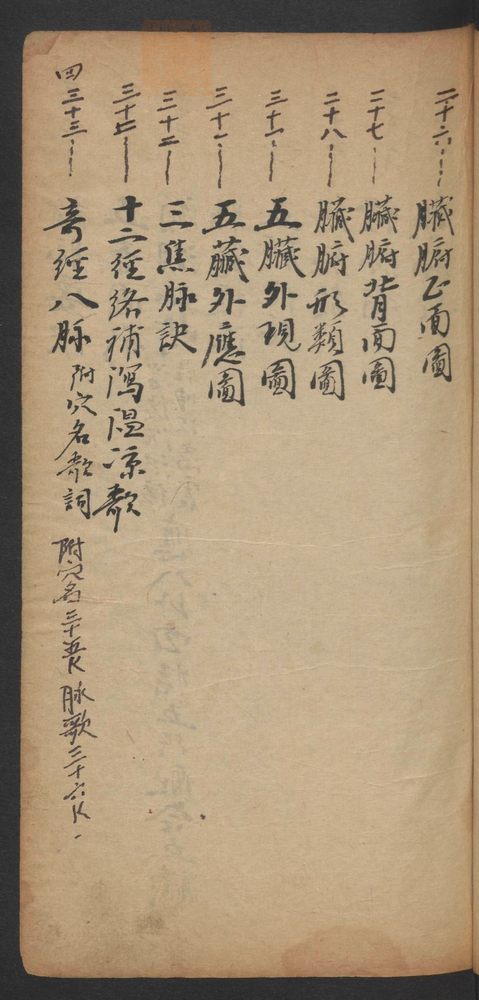 二十六 臟腑正面圖
二十七 臟腑背面圖
二十八 臟腑形類圖
三十一 五臟外現圖
三十一 五臟外應圖
三十二 三焦脉訣
三十 十二經絡補瀉温凉歌
四三十三 奇經八脉 附穴名歌詞 附穴名三十 脉歌三十六